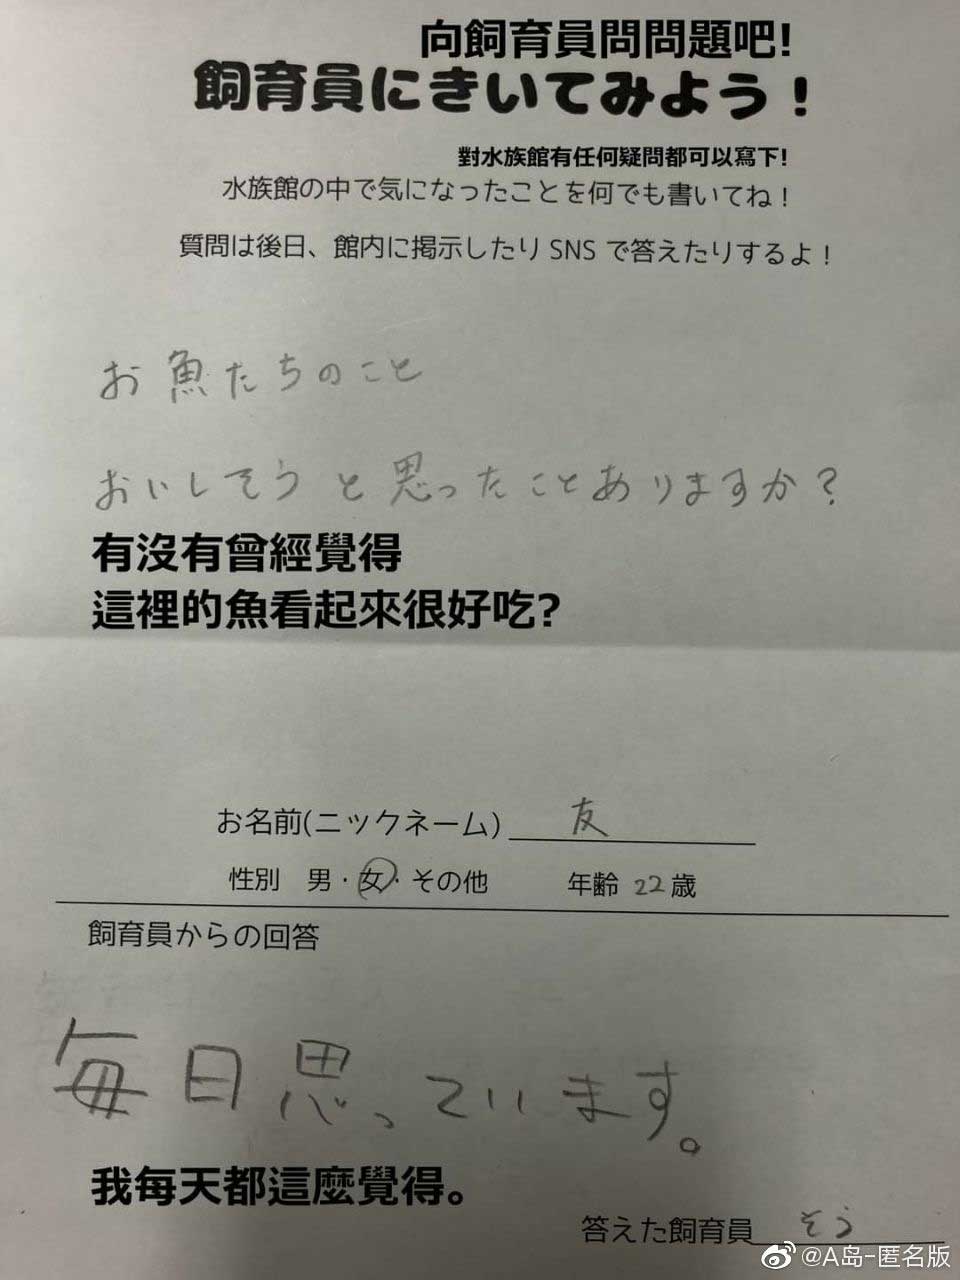 向飼育員問問題吧!
飼育員にきいてみよう！
對水族館有任何疑問都可以寫下!
水族館の中で気になったことを何でも書いてね！
質問は後日、館内に掲示したりSNSで答えたりするよ！
お魚たちのこと
おいしそうと思ったことありますか？
有沒有曾經覺得
這裡的魚看起來很好吃?
お名前(ニックネーム) 友
性別 男・女・その他 年齢 22歳
飼育員からの回答
毎日思っています。
我每天都這麼覺得。
答えた飼育員 そう
@A岛-匿名版